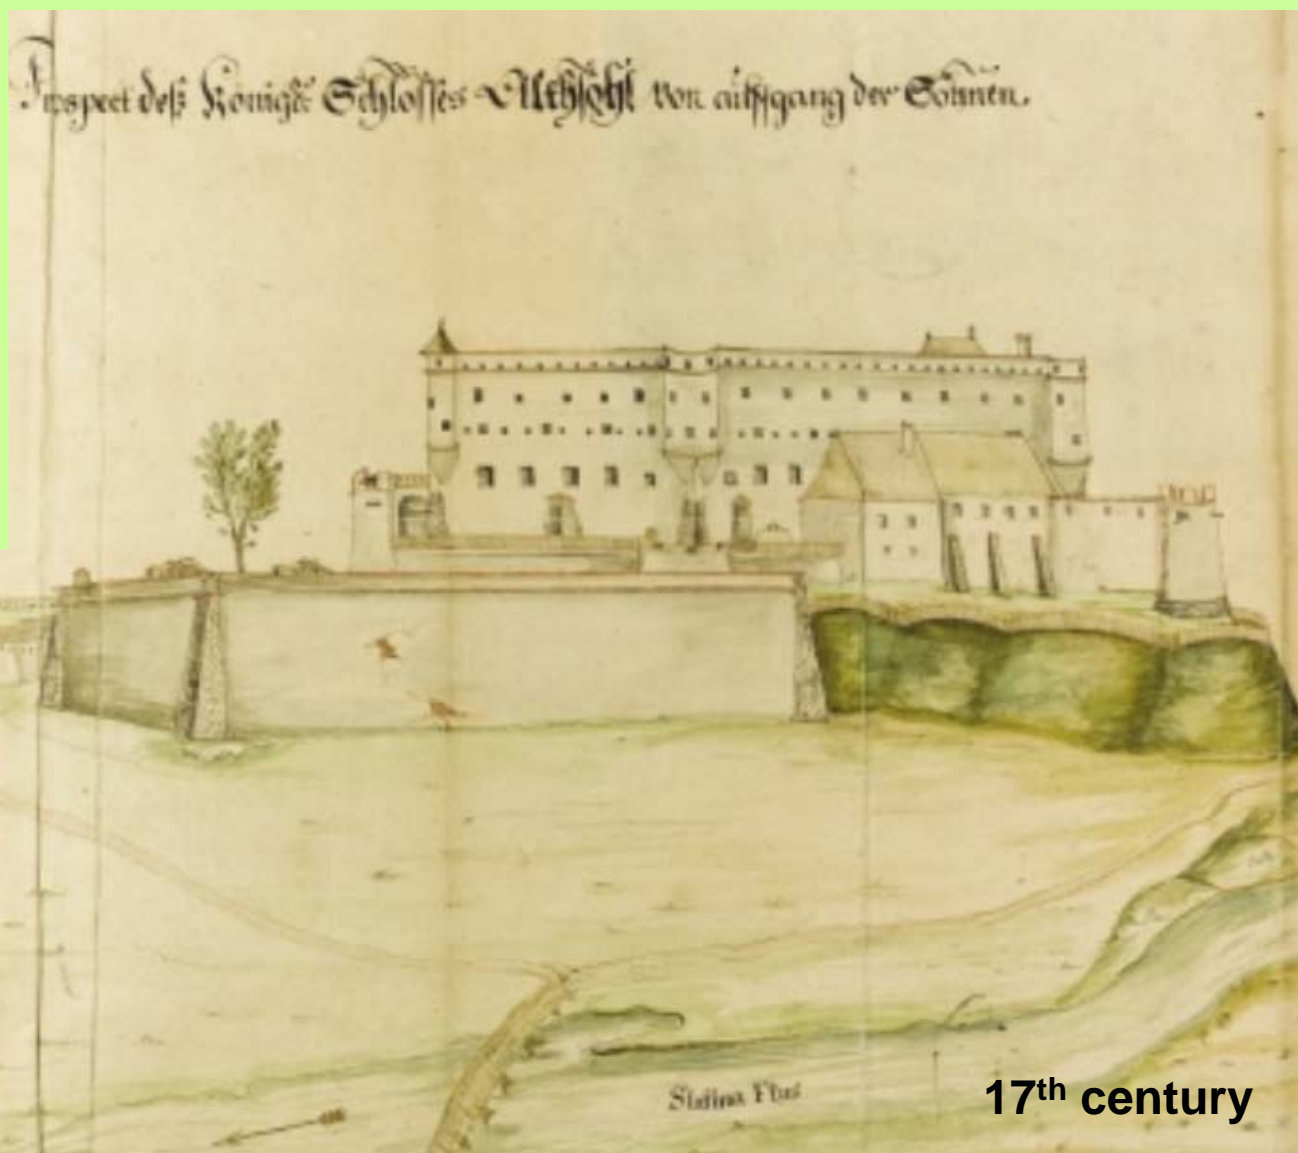 Prospect deß Königl: Schlosses Althsohl von auffgang der Sonnen.
Slatina Flus
17th century